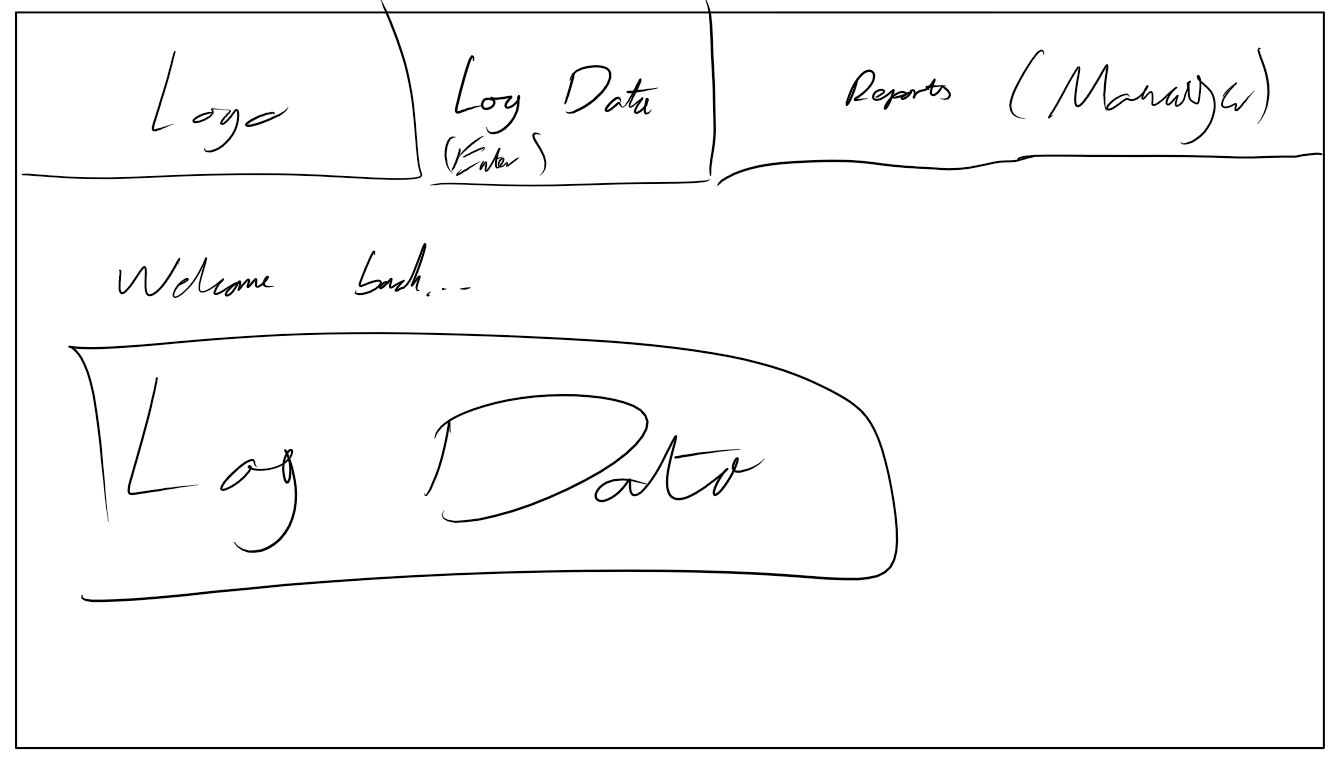 Logo
Log Data
(Enter)
Reports (Manager)
Welcome back...
Log Data